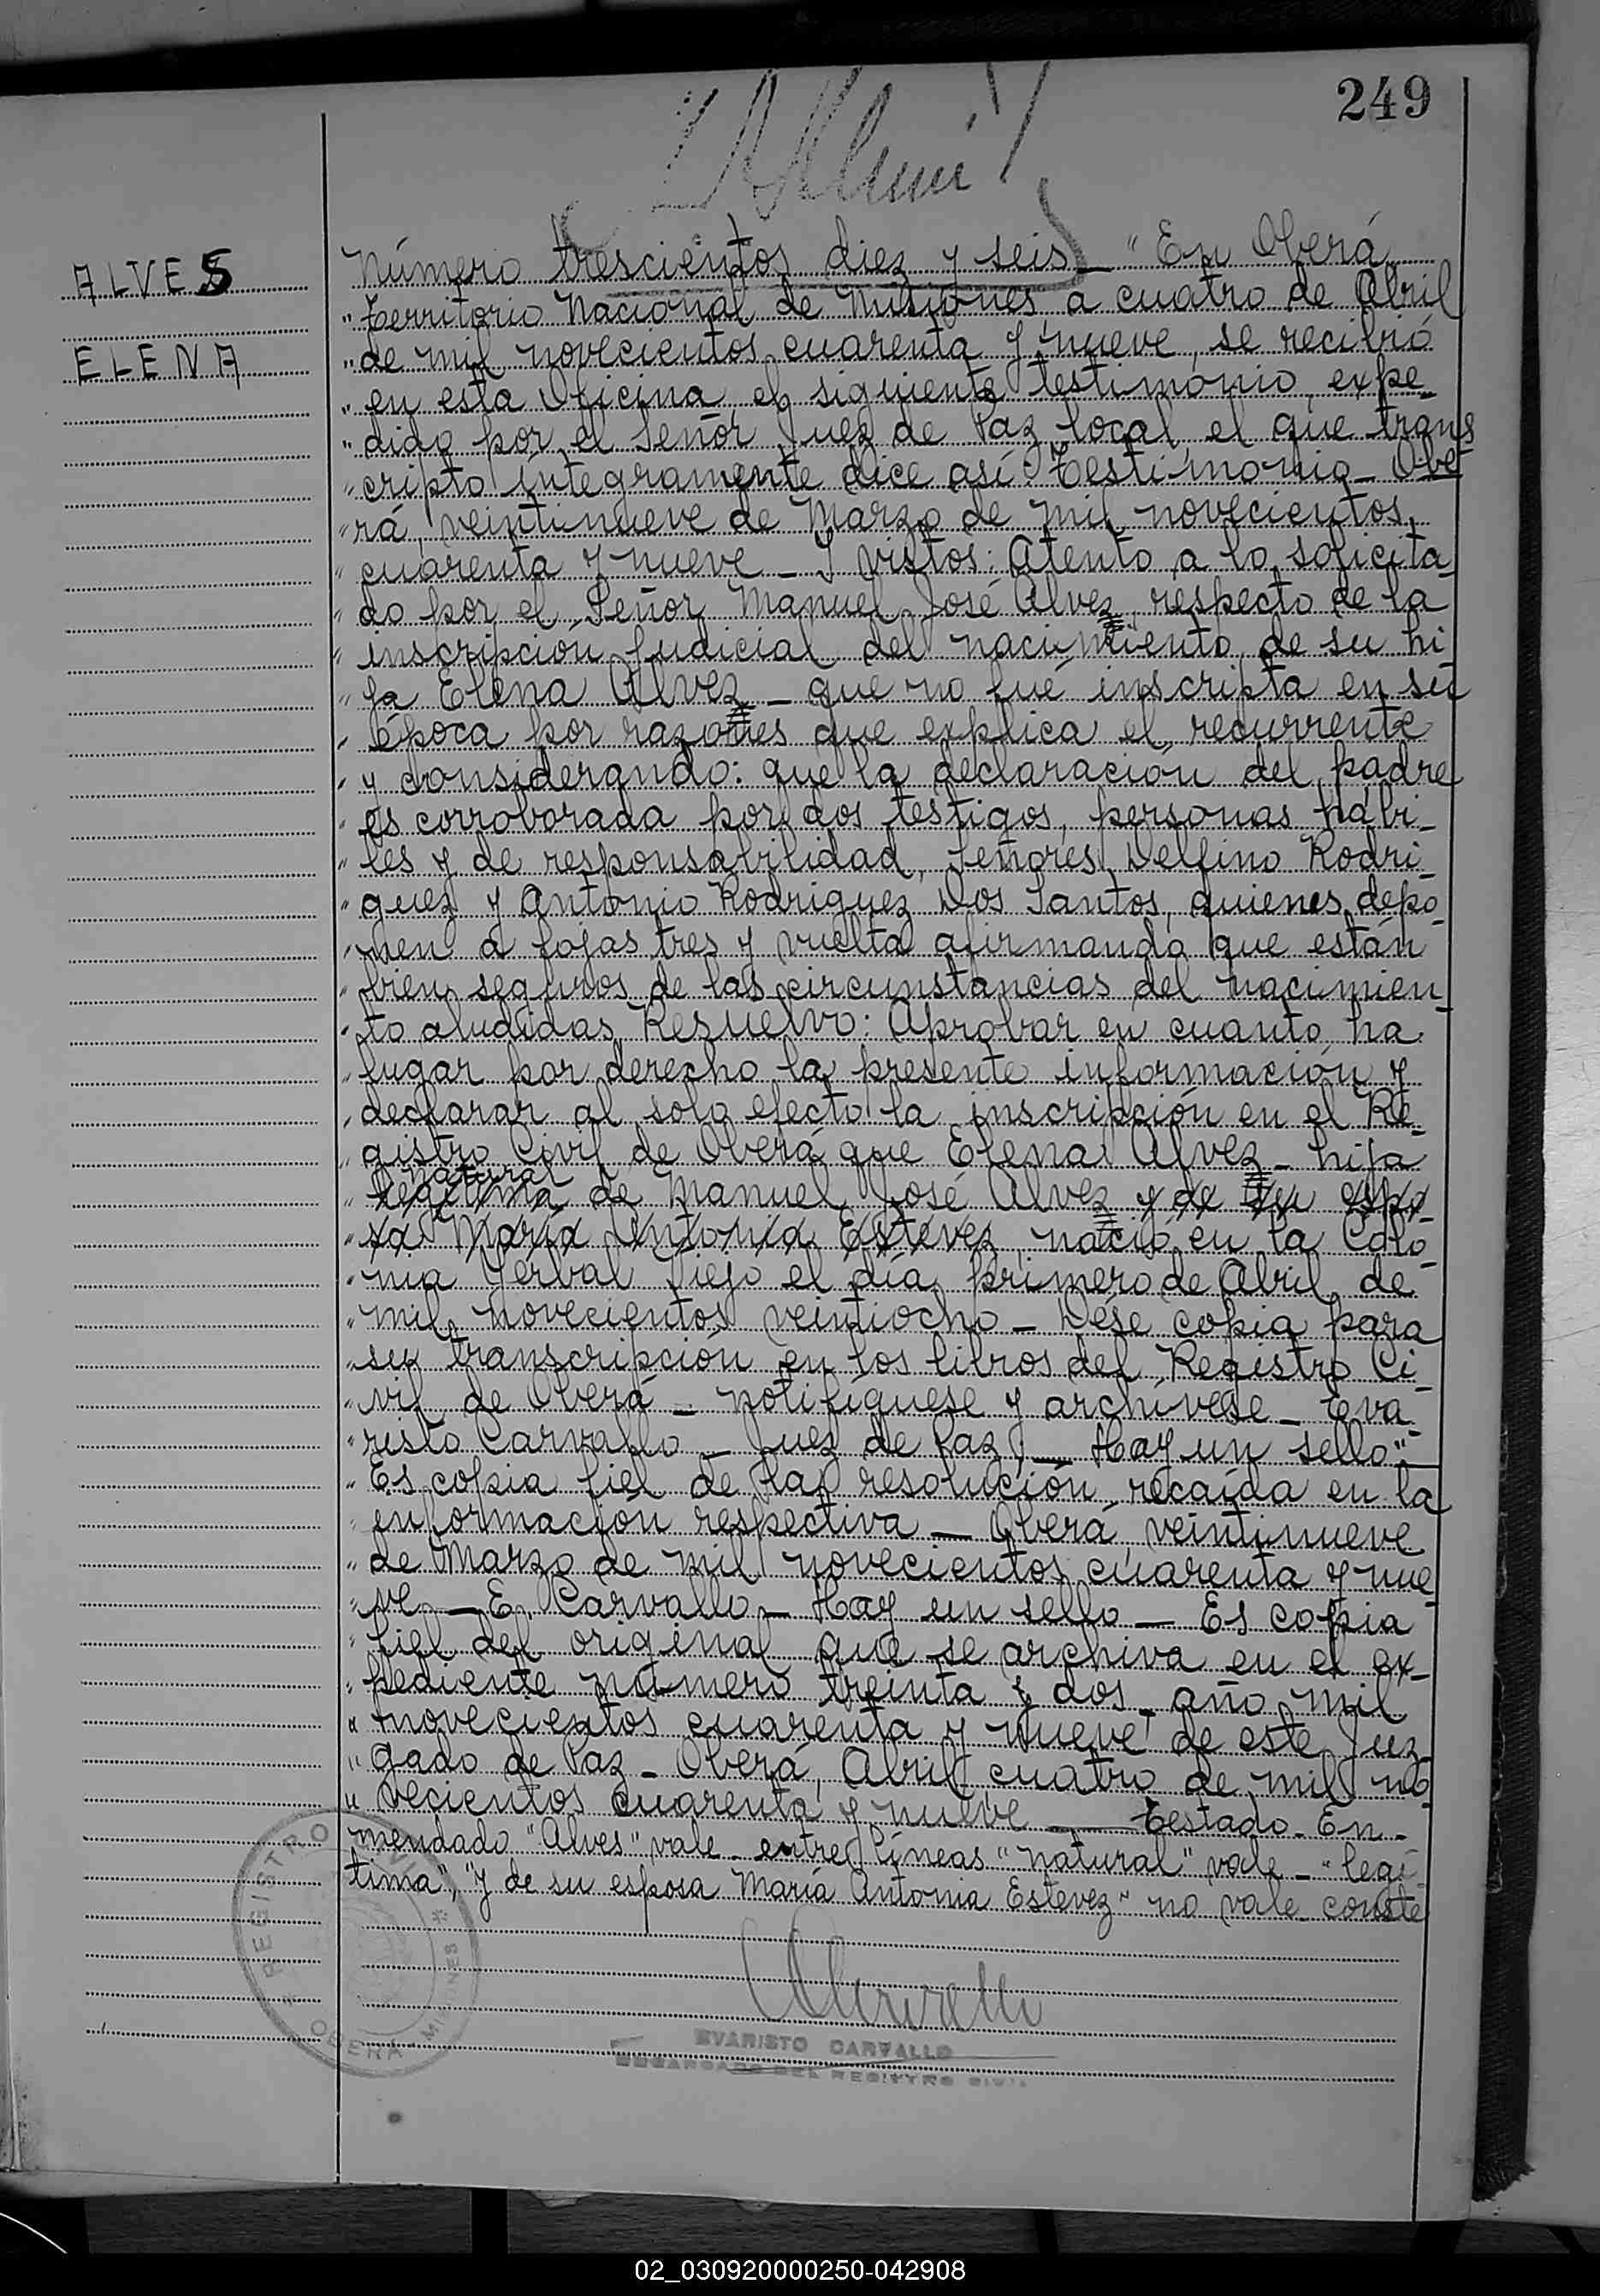 249
ALVES
ELENA
Número trescientos diez y seis — "En Oberá,
"territorio Nacional de Misiones a cuatro de Abril
"de mil novecientos cuarenta y nueve, se recibió
"en esta Oficina, el siguiente testimonio, expe-
"dido por el Señor Juez de Paz local, el que trans
"cripto íntegramente dice así: Testimonio – Obe
"rá, veintinueve de Marzo de mil novecientos
"cuarenta y nueve – Y vistos: Atento a lo solicita-
"do por el Señor Manuel José Alvez, respecto de la
"inscripción judicial del nacimiento de su hi
"ja Elena Alvez – que no fué inscripta en su
"época por razones que explica el recurrente
"y considerando: que la declaración del padre
"es corroborada por dos testigos, personas hábi-
"les y de responsabilidad, señores Delfino Rodri-
"guez y Antonio Rodriguez Dos Santos, quienes depo-
"nen a fojas tres y vuelta afirmando que están
"bien seguros de las circunstancias del nacimien-
"to aludidas, Resuelvo: Aprobar en cuanto ha
"lugar por derecho la presente información y
"declarar al solo efecto la inscripción en el Re-
"gistro Civil de Oberá que Elena Alvez – hija
natural
"legítima de Manuel José Alvez y de su espo-
"sa María Antonia Estevez, nació en la Colo-
"nia Yerbal Viejo el día primero de Abril de
"mil novecientos veintiocho – Dése copia para
"su transcripción en los libros del Registro Ci-
"vil de Oberá – notifíquese y archívese – Eva-
"risto Carvallo – Juez de Paz – Hay un sello"–
"Es copia fiel de la resolución recaída en la
"información respectiva — Oberá, veintinueve
"de Marzo de mil novecientos cuarenta y nue-
"ve – E. Carvallo – Hay un sello – Es copia
"fiel del original que se archiva en el ex-
"pediente número treinta y dos, año mil
"novecientos cuarenta y nueve de este Juz-
"gado de Paz – Oberá, Abril cuatro de mil no-
"vecientos cuarenta y nueve — Testado – En-
mendado "Alves" vale – entre líneas "natural" vale – "legí-
tima", "y de su esposa María Antonia Estevez" no vale conste
REGISTRO CIVIL
OBERÁ MISIONES
EVARISTO CARVALLO
ENCARGADO DEL REGISTRO CIVIL
02_030920000250-042908